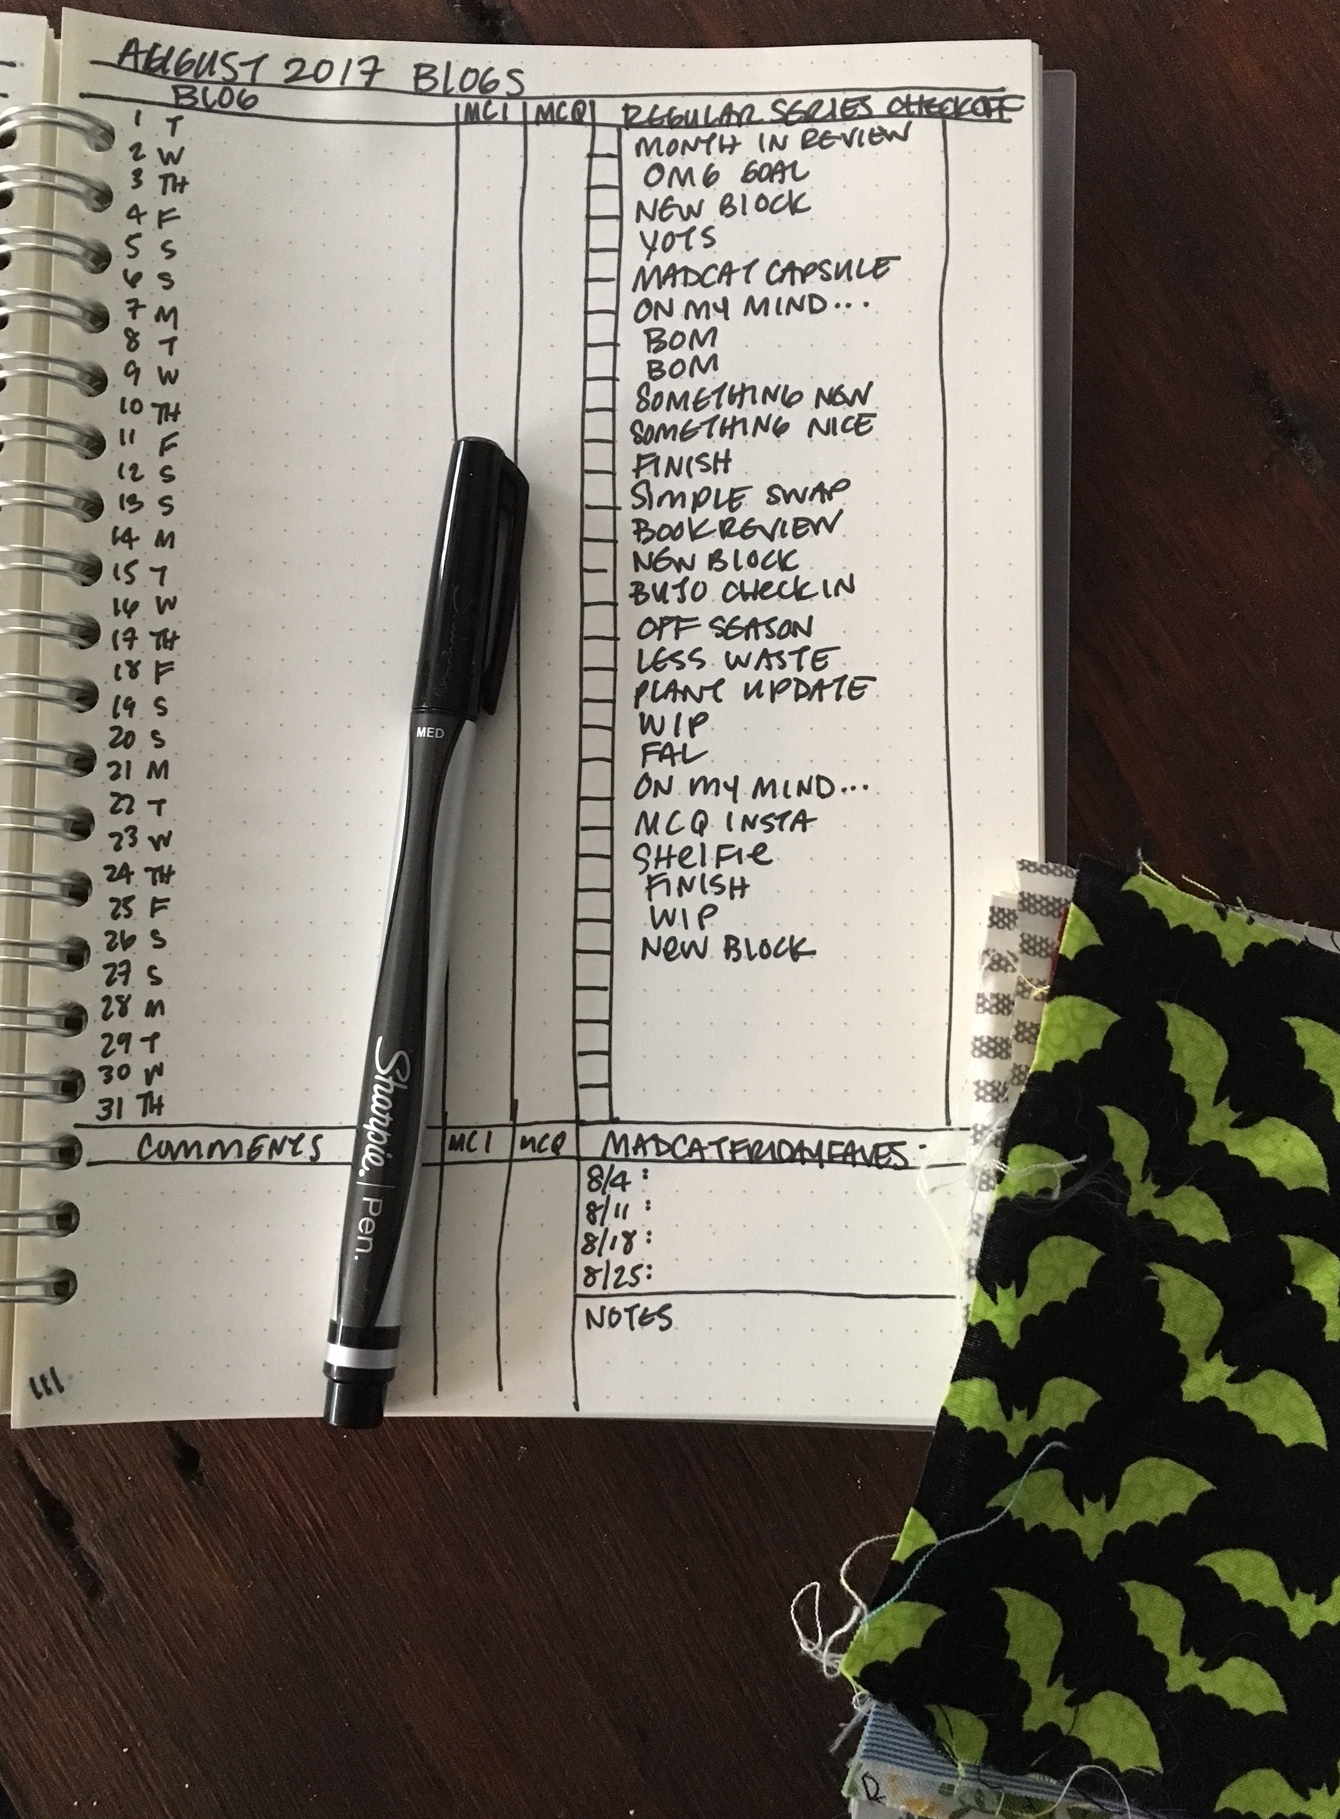 AUGUST 2017 BLOGS
BLOG MCI MCQ REGULAR SERIES CHECKOFF
1 T
2 W
3 TH
4 F
5 S
6 S
7 M
8 T
9 W
10 TH
11 F
12 S
13 S
14 M
15 T
16 W
17 TH
18 F
19 S
20 S
21 M
22 T
23 W
24 TH
25 F
26 S
27 S
28 M
29 T
30 W
31 TH
MONTH IN REVIEW
OMG GOAL
NEW BLOCK
YOTS
MADCAT CAPSULE
ON MY MIND...
BOM
BOM
SOMETHING NEW
SOMETHING NICE
FINISH
SIMPLE SWAP
BOOK REVIEW
NEW BLOCK
BUJO CHECK IN
OFF SEASON
LESS WASTE
PLANT UPDATE
WIP
FAL
ON MY MIND...
MCQ INSTA
SHELFIE
FINISH
WIP
NEW BLOCK
COMMENTS MCI MCQ
MADCATFRIDAYFAVES:
8/4:
8/11:
8/18:
8/25:
NOTES
111
MED
Sharpie. Pen.